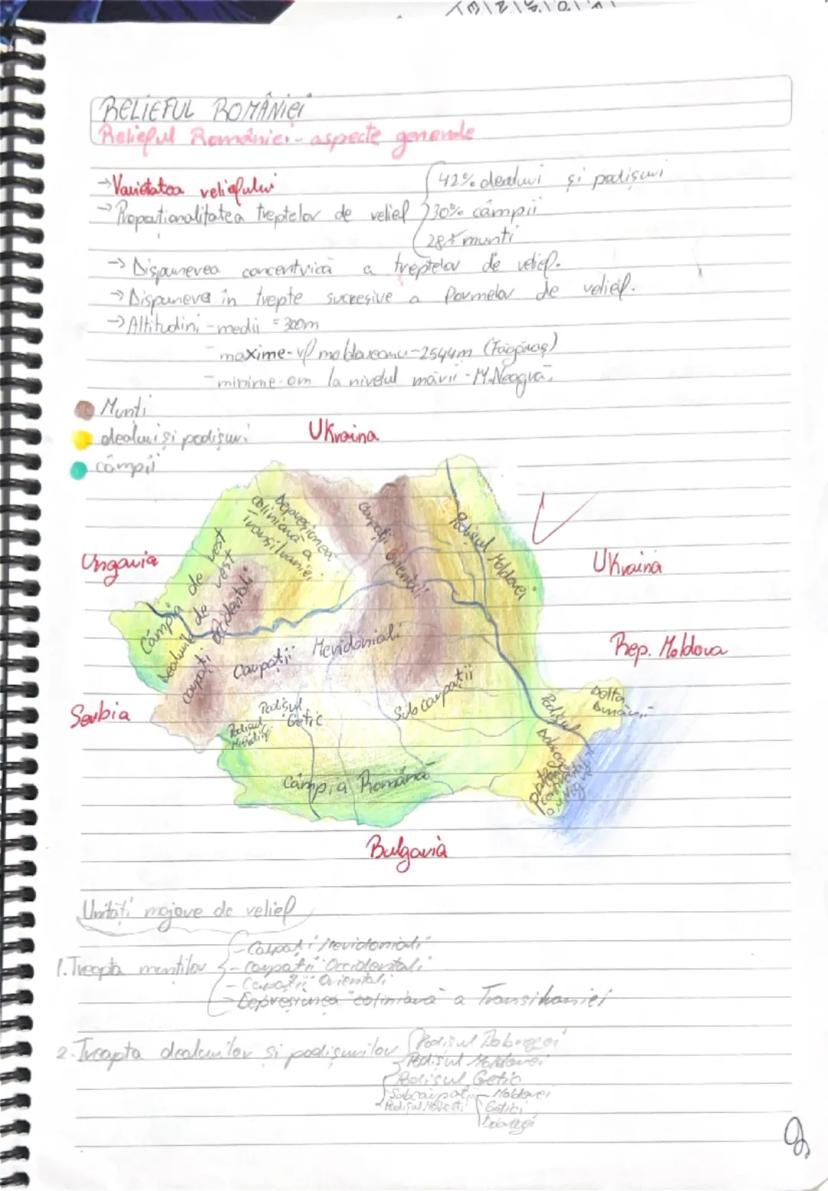 RELIEFUL ROMÂNIEI
Relieful României - aspecte generale
→ Varietatea reliefului
→ Proporționalitatea treptelor de relief { 42% dealuri și podișuri
30% câmpii
28% munti
→ Dispunerea concentrică a treptelor de relief.
→ Dispunerea în trepte succesive a formelor de relief.
→ Altitudini - medii = 300m
- maxime - vf moldoveanu - 2544m (Făgăraș)
- minime - om la nivelul mării - M. Neagră.
Munti
dealuri și podișuri
câmpii
Ukraina
Ungaria
Ukraina
Rep. Moldova
Serbia
Bulgaria
Câmpia de Vest
Dealurile de vest
Carpații Occidentali
Depresiunea colinară a Transilvaniei
Carpații Orientali
Podișul Moldovei
Carpații Meridionali
Subcarpații
Podișul Getic
Podișul
Câmpia Română
Podișul
Delta Dunării
Unități majore de relief
1. Treapta munților { - Carpații Meridionali
- Carpații Occidentali
- Carpații Orientali
- Depresiunea colinară a Transilvaniei
2. Treapta dealurilor și podișurilor { Podișul Dobrogei
Podișul Moldovei
Podișul Getic
Subcarpații - Moldovei
Getici